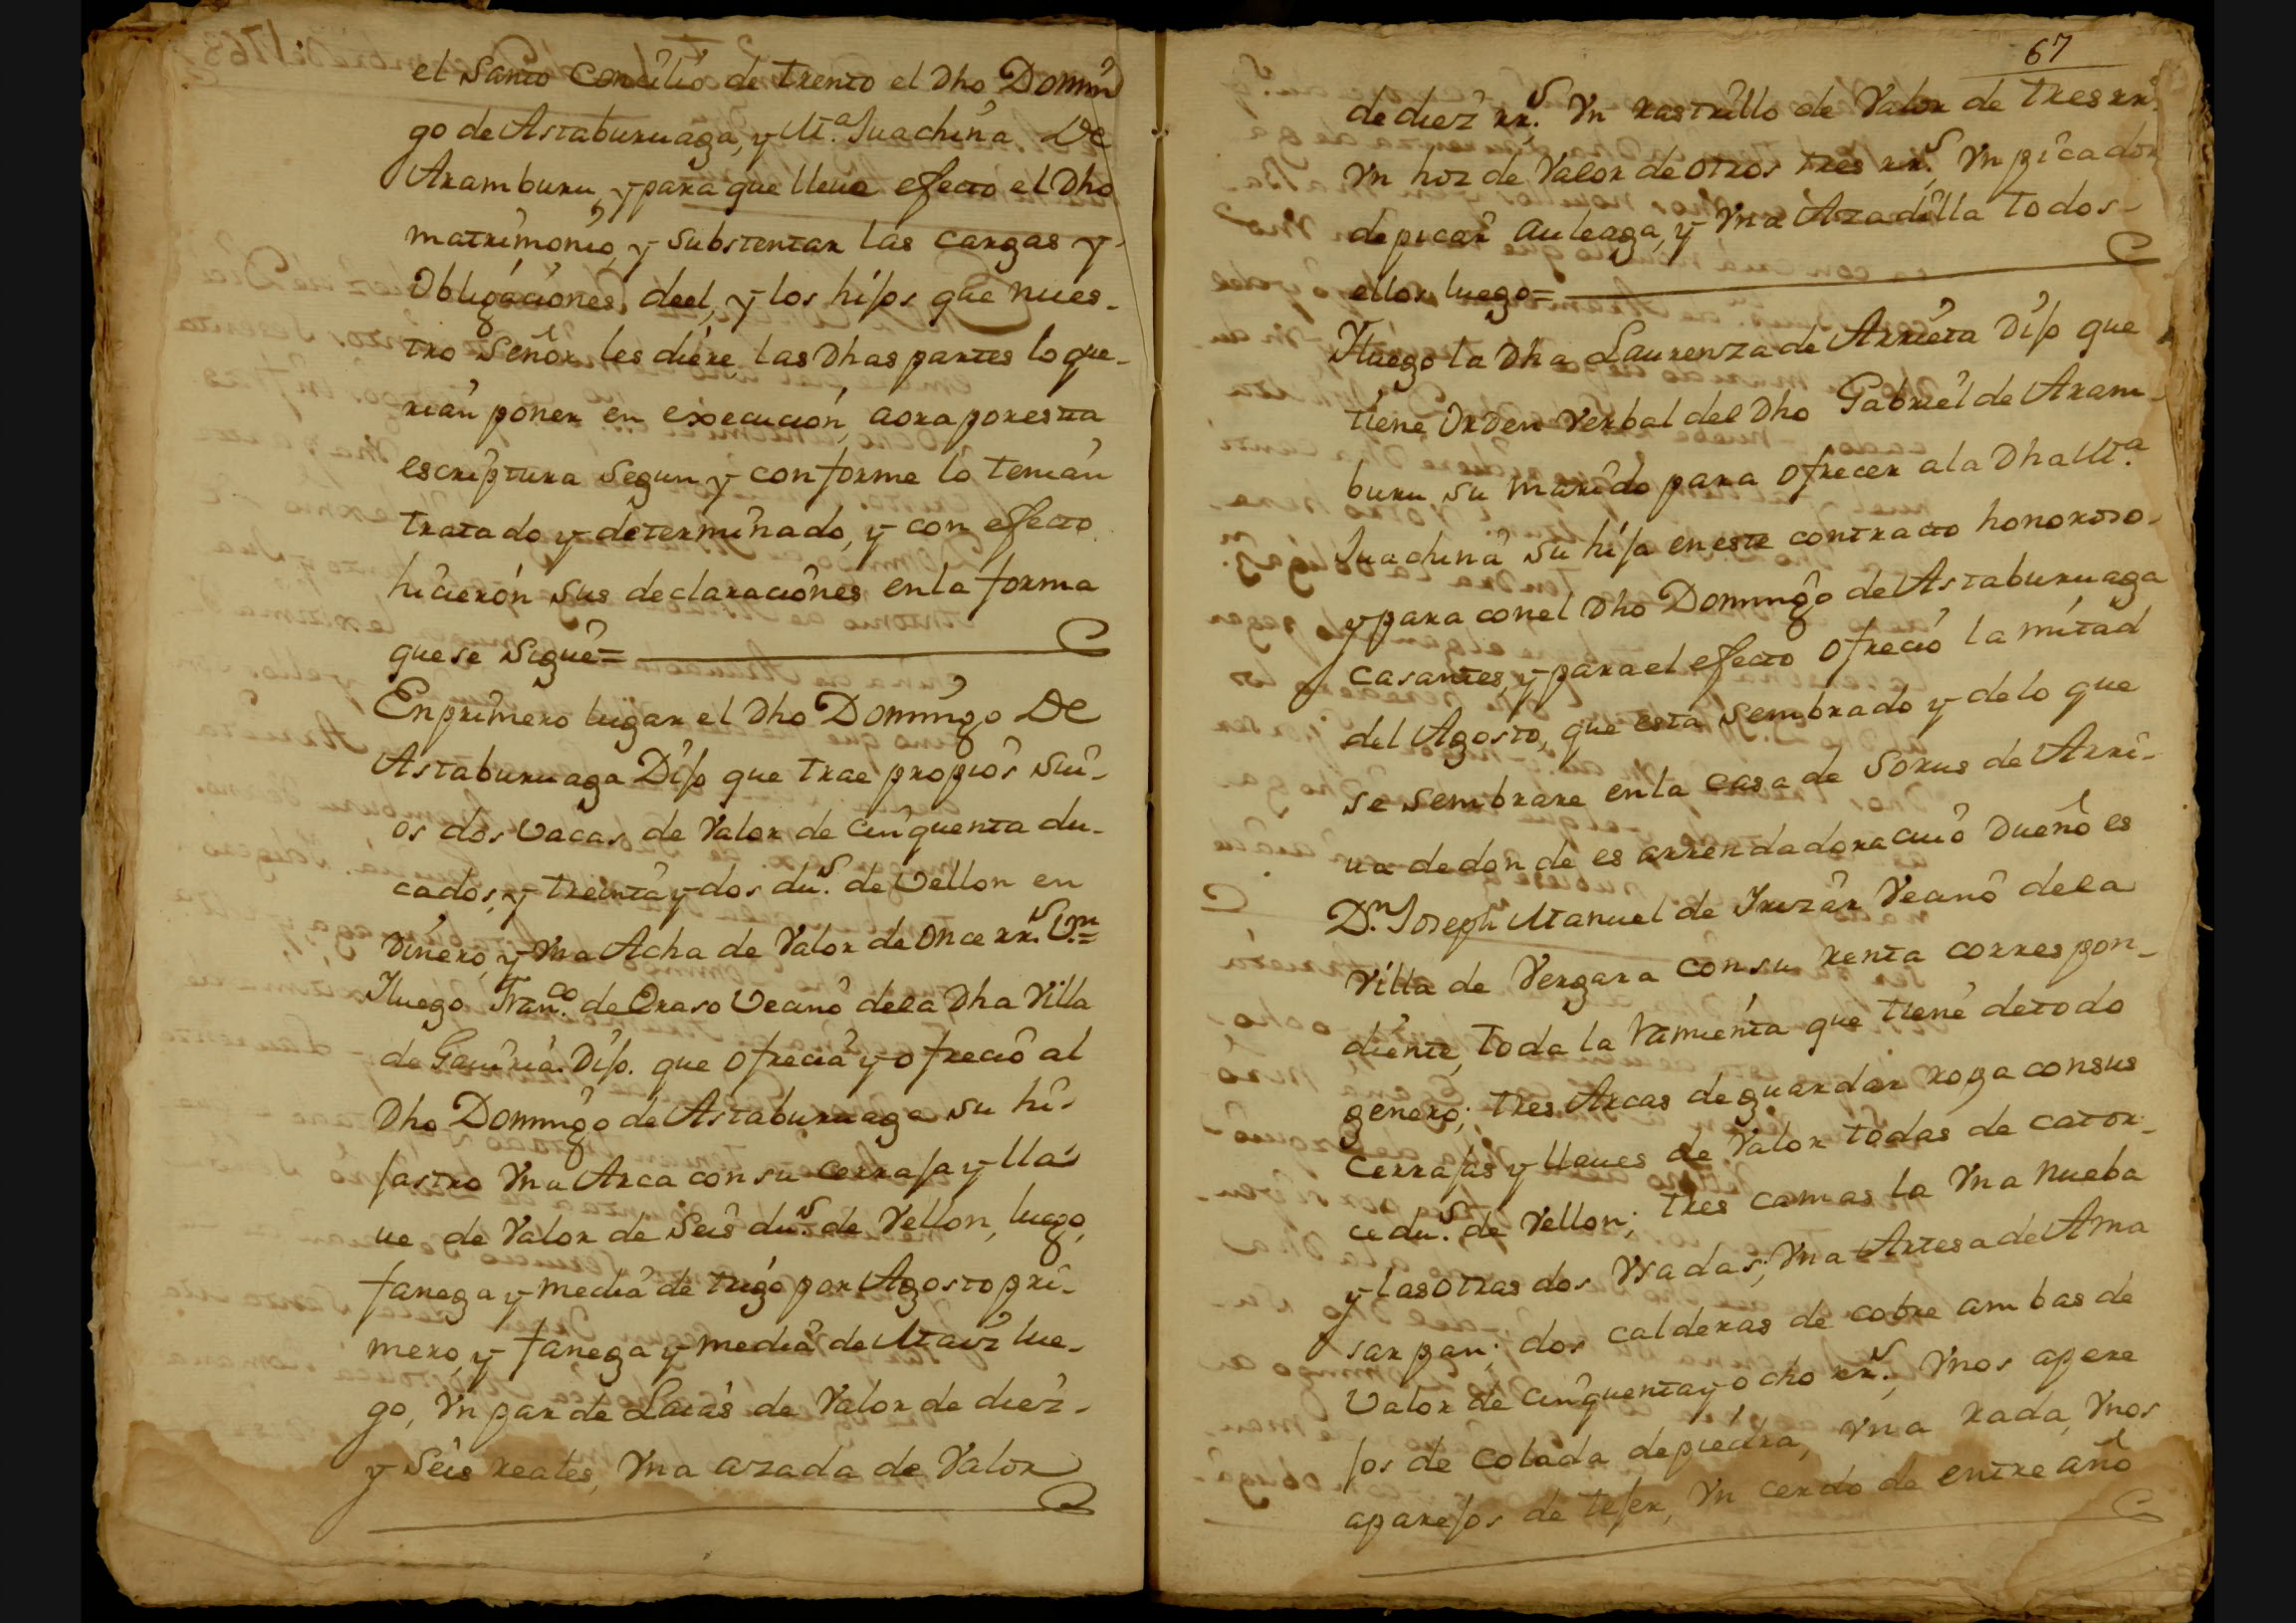 el Santo Concilio de trento el Dho Domin
go de Astaburuaga, y M.ª Juachina De
Aramburu, y para que lleue efecto el Dho
matrimonio, y Substentar las cargas y
Obligaciones deel, y los hijos que nues-
tro Señor les diere las Dhas partes lo que-
rian poner en execucion, aora por esta
escriptura Segun y conforme lo tenian
tratado y determinado, y con efecto
hicieron sus declaraciones en la forma
que se Sigue=
En primero lugar el Dho Domingo De
Astaburuaga Dijo que trae propios sui-
os dos Vacas de Valor de cinquenta du-
cados, y treinta y dos du.s de Vellon en
dinero, y Vna Acha de Valor de once rr.s V.n=
Yluego Fran.co de Oraso Vecino dela Dha Villa
de Gauiria Dijo. que ofrecia y ofrecio al
Dho Domingo de Astaburuaga su hi-
jastro Vna Arca con su cerraja y lla-
ue de Valor de Seis du.s de Vellon, luego,
fanega y media de trigo por Agosto pri-
mero, y fanega y media de Maiz lue-
go, Vn par de Laias de Valor de diez-
y Seis reales, Vna azada de Valor
67
de diez rr.s Vn rastrillo de Valor de tres rr.s
Vn hoz de Valor de otros tres rr.s, Vn picador
de picar auleaga, y Vna Azadilla todos-
ellos luego=
Yluego la Dha Laurenza de Arrieta Dijo que
tiene Orden Verbal del Dho Gabriel de Aram-
buru su marido para ofrecer ala Dha M.ª
Juachina su hija en este contracto honoroso-
y para con el Dho Domingo de Astaburuaga
casantes, y para el efecto ofrecio la mitad
del Agosto, que esta Sembrado y delo que
se sembrare enla casa de Sorus de Arri-
ua de donde es arrendadora cuio dueño es
D.n Joseph Manuel de Irizar Vecino dela
Villa de Vergara con su renta correspon-
diente, toda la ramienta que tiene de todo
genero; tres Arcas de guardar ropa con sus
cerrajas y llaues de Valor todas de cator-
ce du.s de Vellon; tres camas la Vna nueba
y las otras dos Vsadas; Vna Artesa de Ama
sar pan; dos calderas de cobre ambas de
Valor de cinquenta y ocho rr.s, Vnos apere
jos de colada de piedra, Vna rada, Vnos
aparejos de tejer, Vn cerdo de entre año